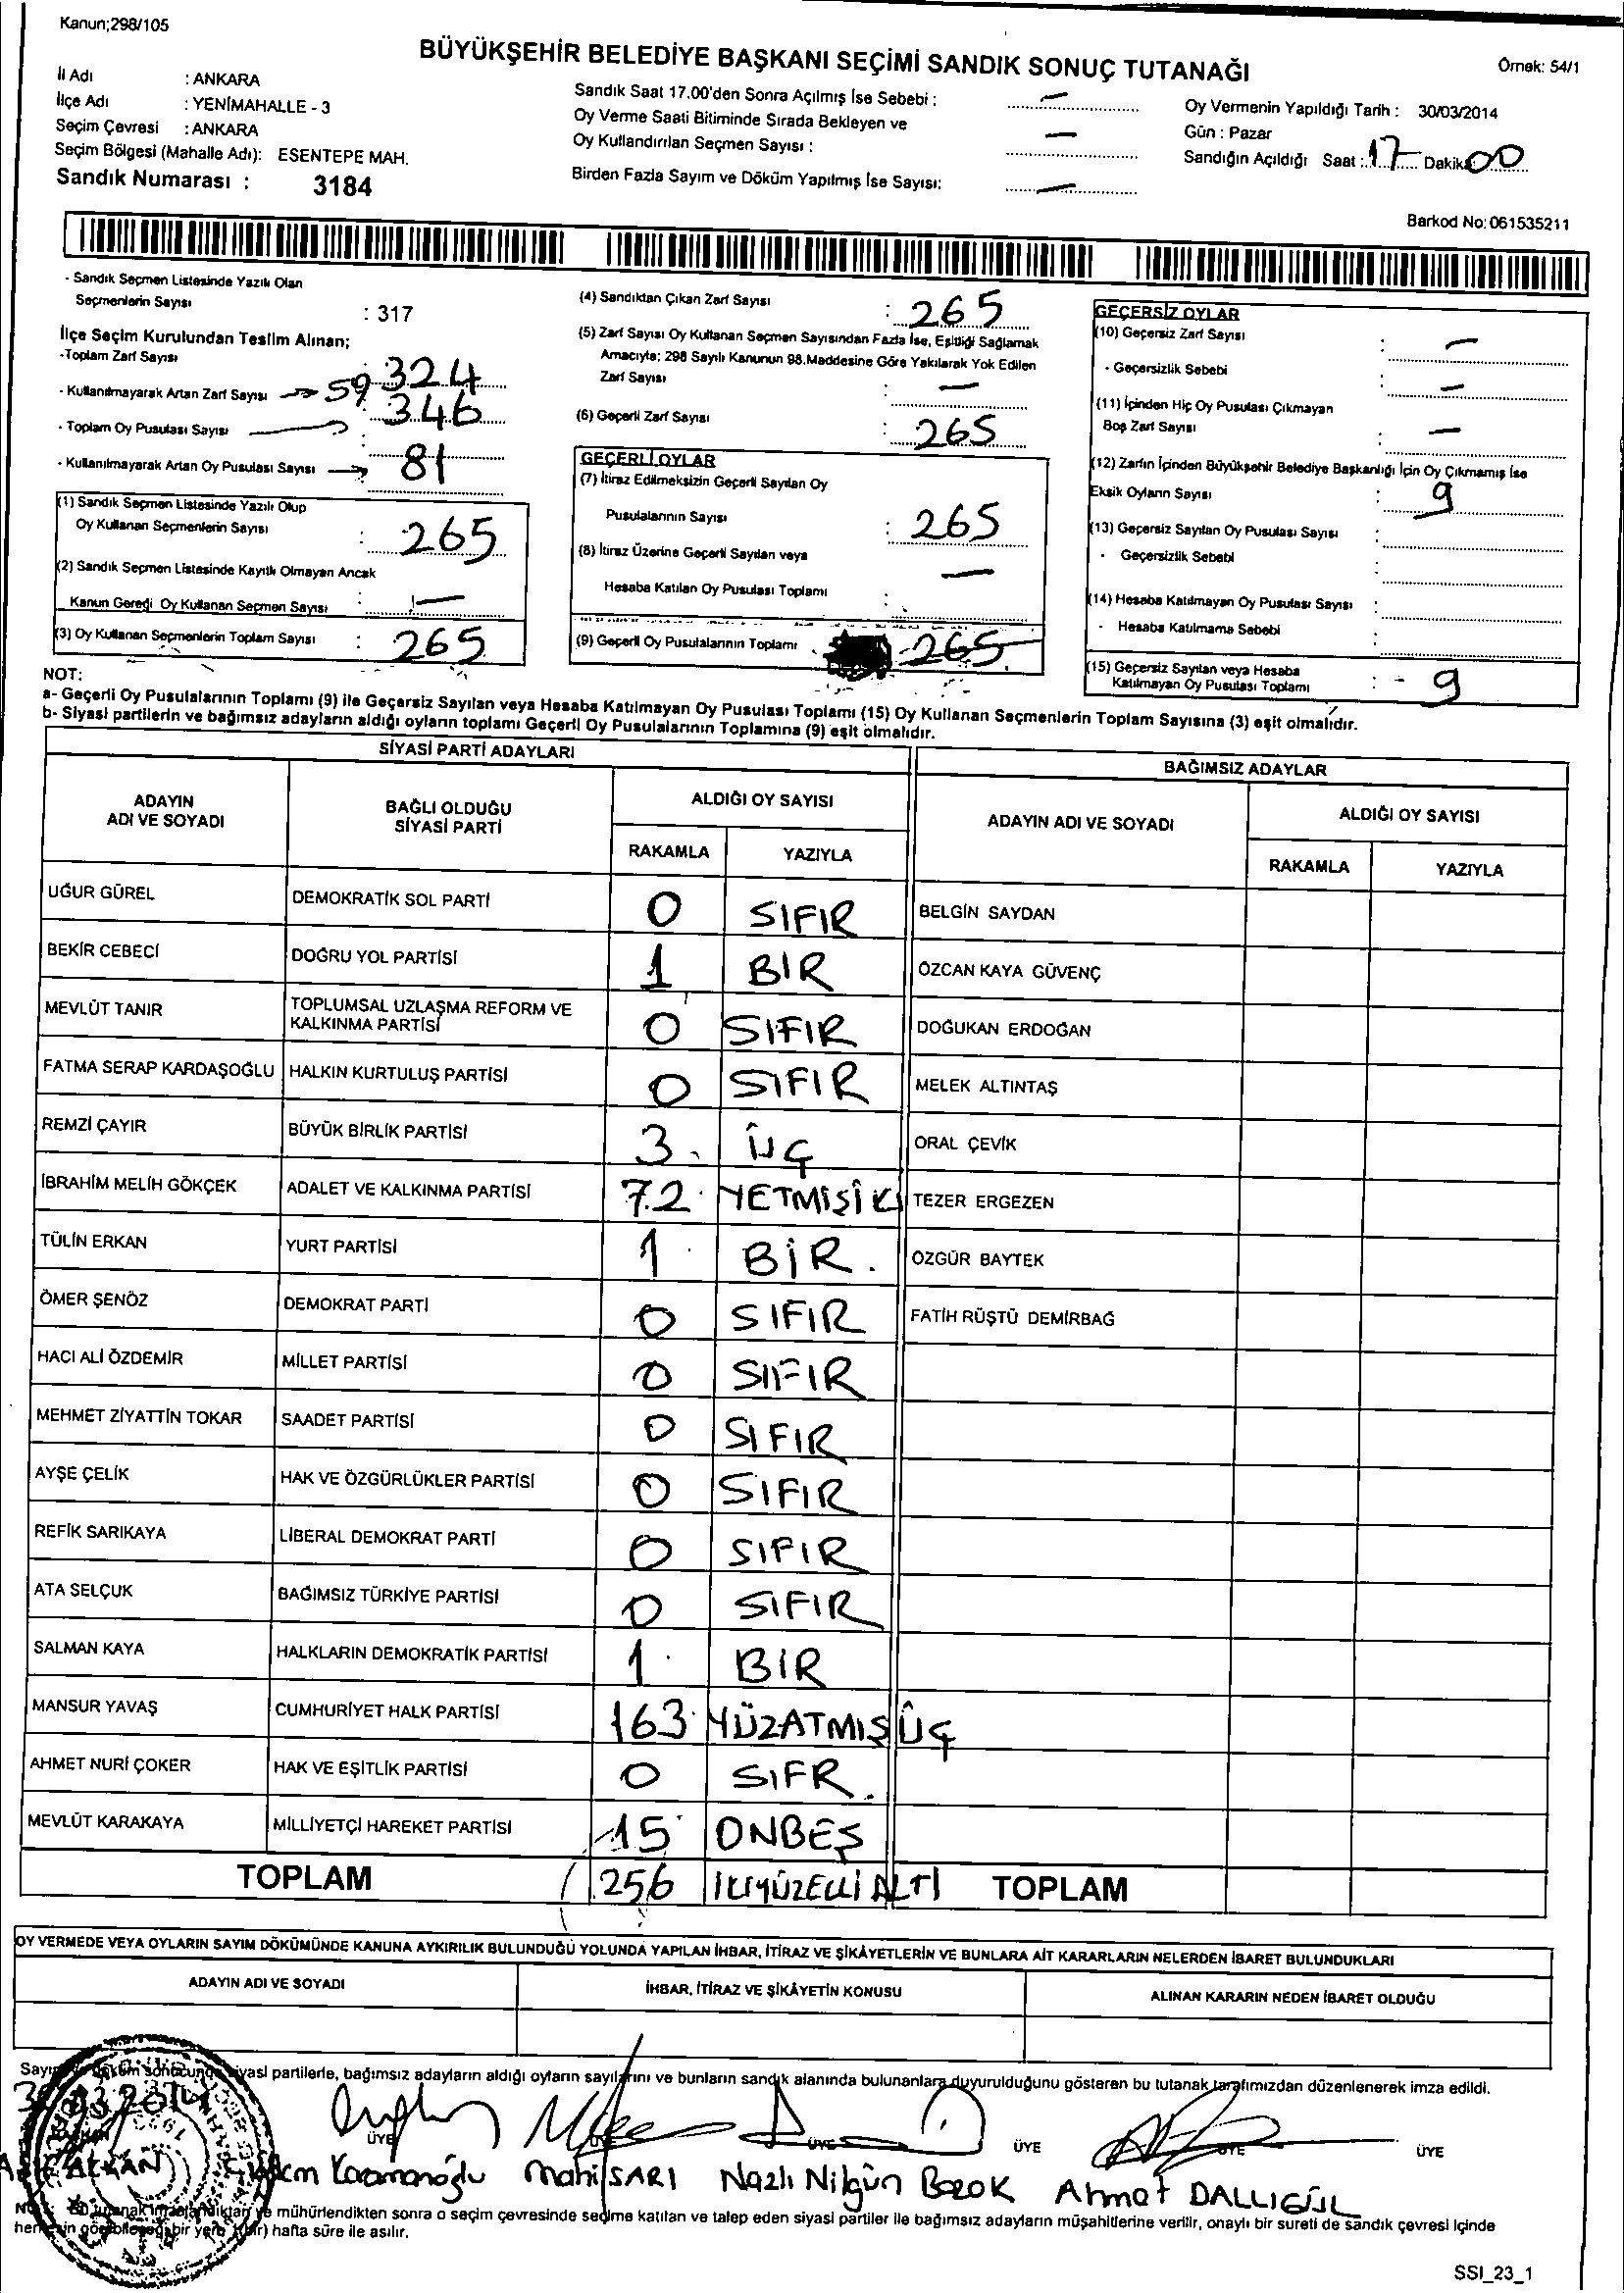 Kanun;298/105
BÜYÜKŞEHİR BELEDİYE BAŞKANI SEÇİMİ SANDIK SONUÇ TUTANAĞI
Örnek: 54/1
İl Adı : ANKARA
İlçe Adı : YENİMAHALLE - 3
Seçim Çevresi : ANKARA
Seçim Bölgesi (Mahalle Adı): ESENTEPE MAH.
Sandık Numarası : 3184
Sandık Saat 17.00'den Sonra Açılmış İse Sebebi : —
Oy Verme Saati Bitiminde Sırada Bekleyen ve
Oy Kullandırılan Seçmen Sayısı : —
Birden Fazla Sayım ve Döküm Yapılmış İse Sayısı: —
Oy Vermenin Yapıldığı Tarih : 30/03/2014
Gün : Pazar
Sandığın Açıldığı Saat : 17 Dakika 00
Barkod No: 061535211
- Sandık Seçmen Listesinde Yazılı Olan
Seçmenlerin Sayısı : 317
İlçe Seçim Kurulundan Teslim Alınan;
-Toplam Zarf Sayısı 324
- Kullanılmayarak Artan Zarf Sayısı → 59
- Toplam Oy Pusulası Sayısı → 346
- Kullanılmayarak Artan Oy Pusulası Sayısı → 81
(1) Sandık Seçmen Listesinde Yazılı Olup
Oy Kullanan Seçmenlerin Sayısı : 265
(2) Sandık Seçmen Listesinde Kayıtlı Olmayan Ancak
Kanun Gereği Oy Kullanan Seçmen Sayısı : —
(3) Oy Kullanan Seçmenlerin Toplam Sayısı : 265
(4) Sandıktan Çıkan Zarf Sayısı : 265
(5) Zarf Sayısı Oy Kullanan Seçmen Sayısından Fazla İse, Eşitliği Sağlamak
Amacıyla; 298 Sayılı Kanunun 98.Maddesine Göre Yakılarak Yok Edilen
Zarf Sayısı : —
(6) Geçerli Zarf Sayısı : 265
GEÇERLİ OYLAR
(7) İtiraz Edilmeksizin Geçerli Sayılan Oy
Pusulalarının Sayısı : 265
(8) İtiraz Üzerine Geçerli Sayılan veya
Hesaba Katılan Oy Pusulası Toplamı : —
(9) Geçerli Oy Pusulalarının Toplamı 265
GEÇERSİZ OYLAR
(10) Geçersiz Zarf Sayısı : —
- Geçersizlik Sebebi : —
(11) İçinden Hiç Oy Pusulası Çıkmayan
Boş Zarf Sayısı : —
(12) Zarfın İçinden Büyükşehir Belediye Başkanlığı İçin Oy Çıkmamış İse
Eksik Oyların Sayısı : 9
(13) Geçersiz Sayılan Oy Pusulası Sayısı :
- Geçersizlik Sebebi
(14) Hesaba Katılmayan Oy Pusulası Sayısı :
- Hesaba Katılmama Sebebi :
(15) Geçersiz Sayılan veya Hesaba
Katılmayan Oy Pusulası Toplamı : - 9
NOT:
a- Geçerli Oy Pusulalarının Toplamı (9) ile Geçersiz Sayılan veya Hesaba Katılmayan Oy Pusulası Toplamı (15) Oy Kullanan Seçmenlerin Toplam Sayısına (3) eşit olmalıdır.
b- Siyasi partilerin ve bağımsız adayların aldığı oyların toplamı Geçerli Oy Pusulalarının Toplamına (9) eşit olmalıdır.
SİYASİ PARTİ ADAYLARI
BAĞIMSIZ ADAYLAR
ADAYIN ADI VE SOYADI BAĞLI OLDUĞU SİYASİ PARTİ ALDIĞI OY SAYISI ADAYIN ADI VE SOYADI ALDIĞI OY SAYISI
RAKAMLA YAZIYLA RAKAMLA YAZIYLA
UĞUR GÜREL DEMOKRATİK SOL PARTİ 0 SIFIR BELGİN SAYDAN
BEKİR CEBECİ DOĞRU YOL PARTİSİ 1 BIR ÖZCAN KAYA GÜVENÇ
MEVLÜT TANIR TOPLUMSAL UZLAŞMA REFORM VE KALKINMA PARTİSİ 0 SIFIR DOĞUKAN ERDOĞAN
FATMA SERAP KARDAŞOĞLU HALKIN KURTULUŞ PARTİSİ 0 SIFIR MELEK ALTINTAŞ
REMZİ ÇAYIR BÜYÜK BİRLİK PARTİSİ 3 ÜÇ ORAL ÇEVİK
İBRAHİM MELİH GÖKÇEK ADALET VE KALKINMA PARTİSİ 72 YETMİŞİKİ TEZER ERGEZEN
TÜLİN ERKAN YURT PARTİSİ 1 BİR. ÖZGÜR BAYTEK
ÖMER ŞENÖZ DEMOKRAT PARTİ 0 SIFIR FATİH RÜŞTÜ DEMİRBAĞ
HACI ALİ ÖZDEMİR MİLLET PARTİSİ 0 SIFIR
MEHMET ZİYATTİN TOKAR SAADET PARTİSİ 0 SIFIR
AYŞE ÇELİK HAK VE ÖZGÜRLÜKLER PARTİSİ 0 SIFIR
REFİK SARIKAYA LİBERAL DEMOKRAT PARTİ 0 SIFIR
ATA SELÇUK BAĞIMSIZ TÜRKİYE PARTİSİ 0 SIFIR
SALMAN KAYA HALKLARIN DEMOKRATİK PARTİSİ 1 BIR
MANSUR YAVAŞ CUMHURİYET HALK PARTİSİ 163 YÜZATMIŞÜÇ
AHMET NURİ ÇOKER HAK VE EŞİTLİK PARTİSİ 0 SIFR.
MEVLÜT KARAKAYA MİLLİYETÇİ HAREKET PARTİSİ 15 ONBEŞ
TOPLAM 256 İKİYÜZELLİALTI TOPLAM
OY VERMEDE VEYA OYLARIN SAYIM DÖKÜMÜNDE KANUNA AYKIRILIK BULUNDUĞU YOLUNDA YAPILAN İHBAR, İTİRAZ VE ŞİKÂYETLERİN VE BUNLARA AİT KARARLARIN NELERDEN İBARET BULUNDUKLARI
ADAYIN ADI VE SOYADI İHBAR, İTİRAZ VE ŞİKÂYETİN KONUSU ALINAN KARARIN NEDEN İBARET OLDUĞU
Sayım ve döküm sonucunda siyasi partilerle, bağımsız adayların aldığı oyların sayılarını ve bunların sandık alanında bulunanlara duyurulduğunu gösteren bu tutanak tarafımızdan düzenlenerek imza edildi.
ÜYE ÜYE ÜYE ÜYE ÜYE ÜYE
Karamanoğlu Mahi SARI Nazlı Nilgün Bozok Ahmet DALLIGÜL
mühürlendikten sonra o seçim çevresinde seçime katılan ve talep eden siyasi partiler ile bağımsız adayların müşahitlerine verilir, onaylı bir sureti de sandık çevresi içinde
herkesin görebileceği bir yere (bir) hafta süre ile asılır.
SSI_23_1